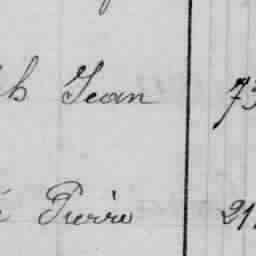 h Jean 73
Pierre 21